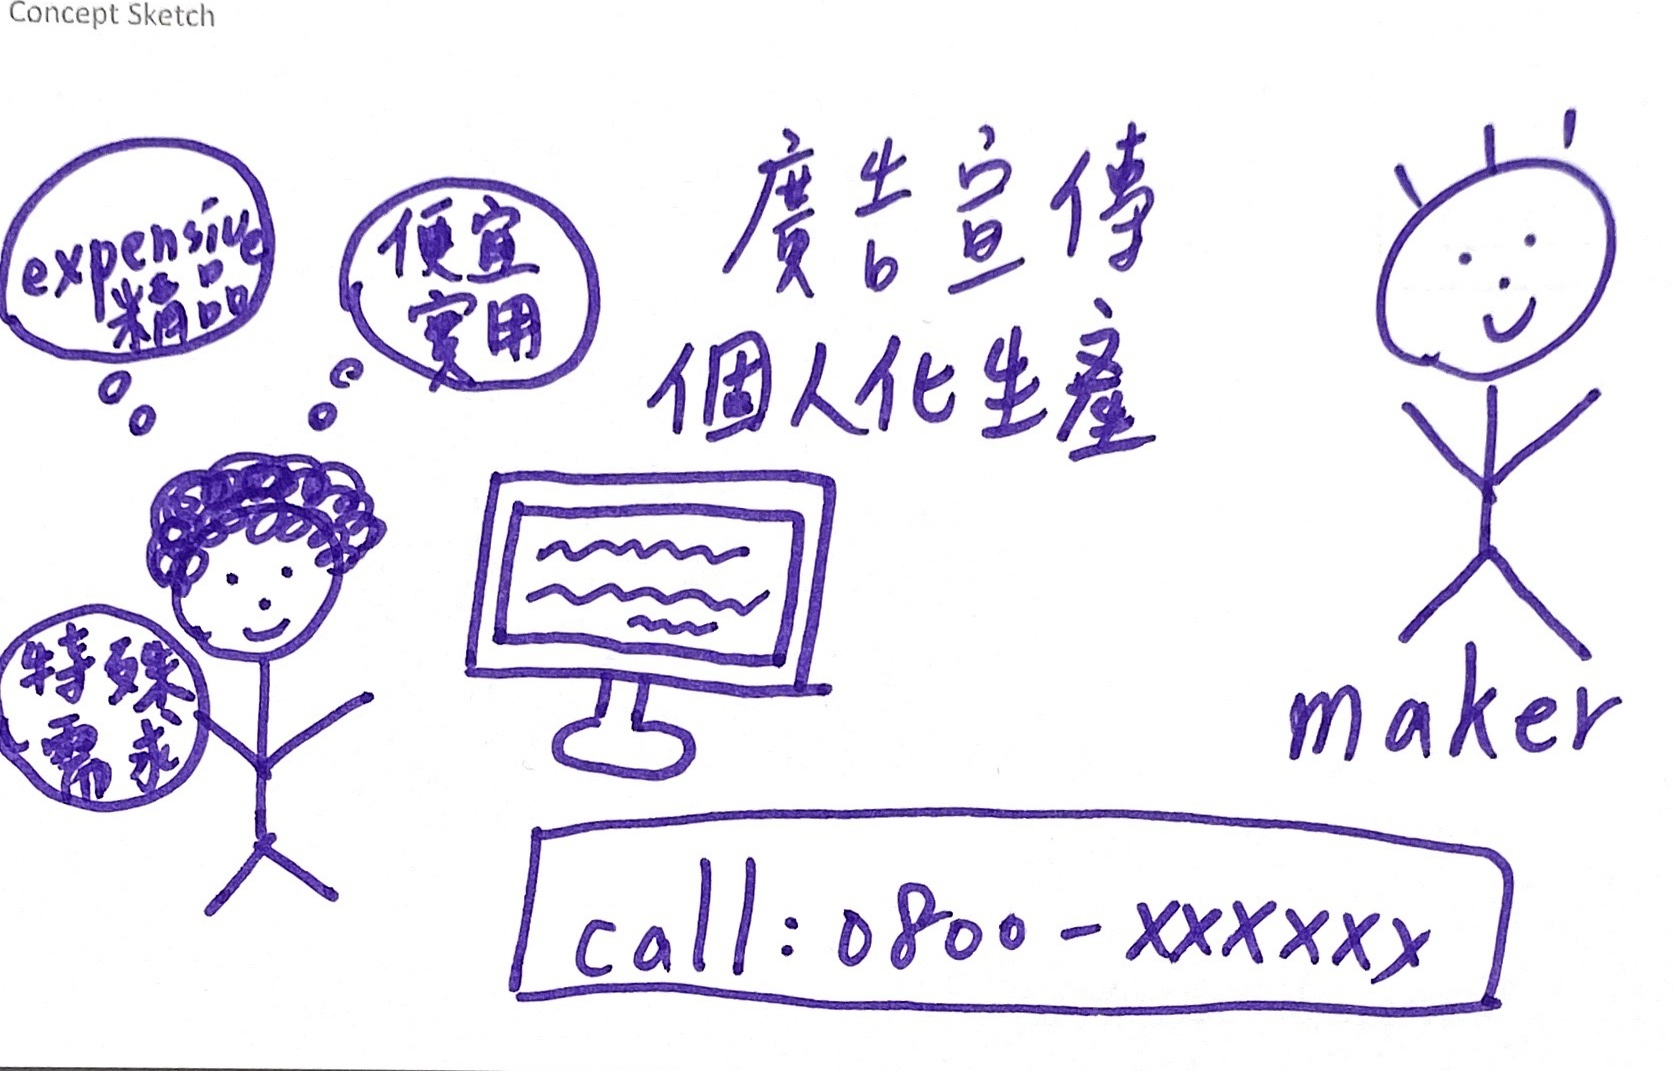 Concept Sketch
expensive
精品
便宜
實用
廣告宣傳
個人化生產
特殊
需求
maker
call：0800-xxxxxxx